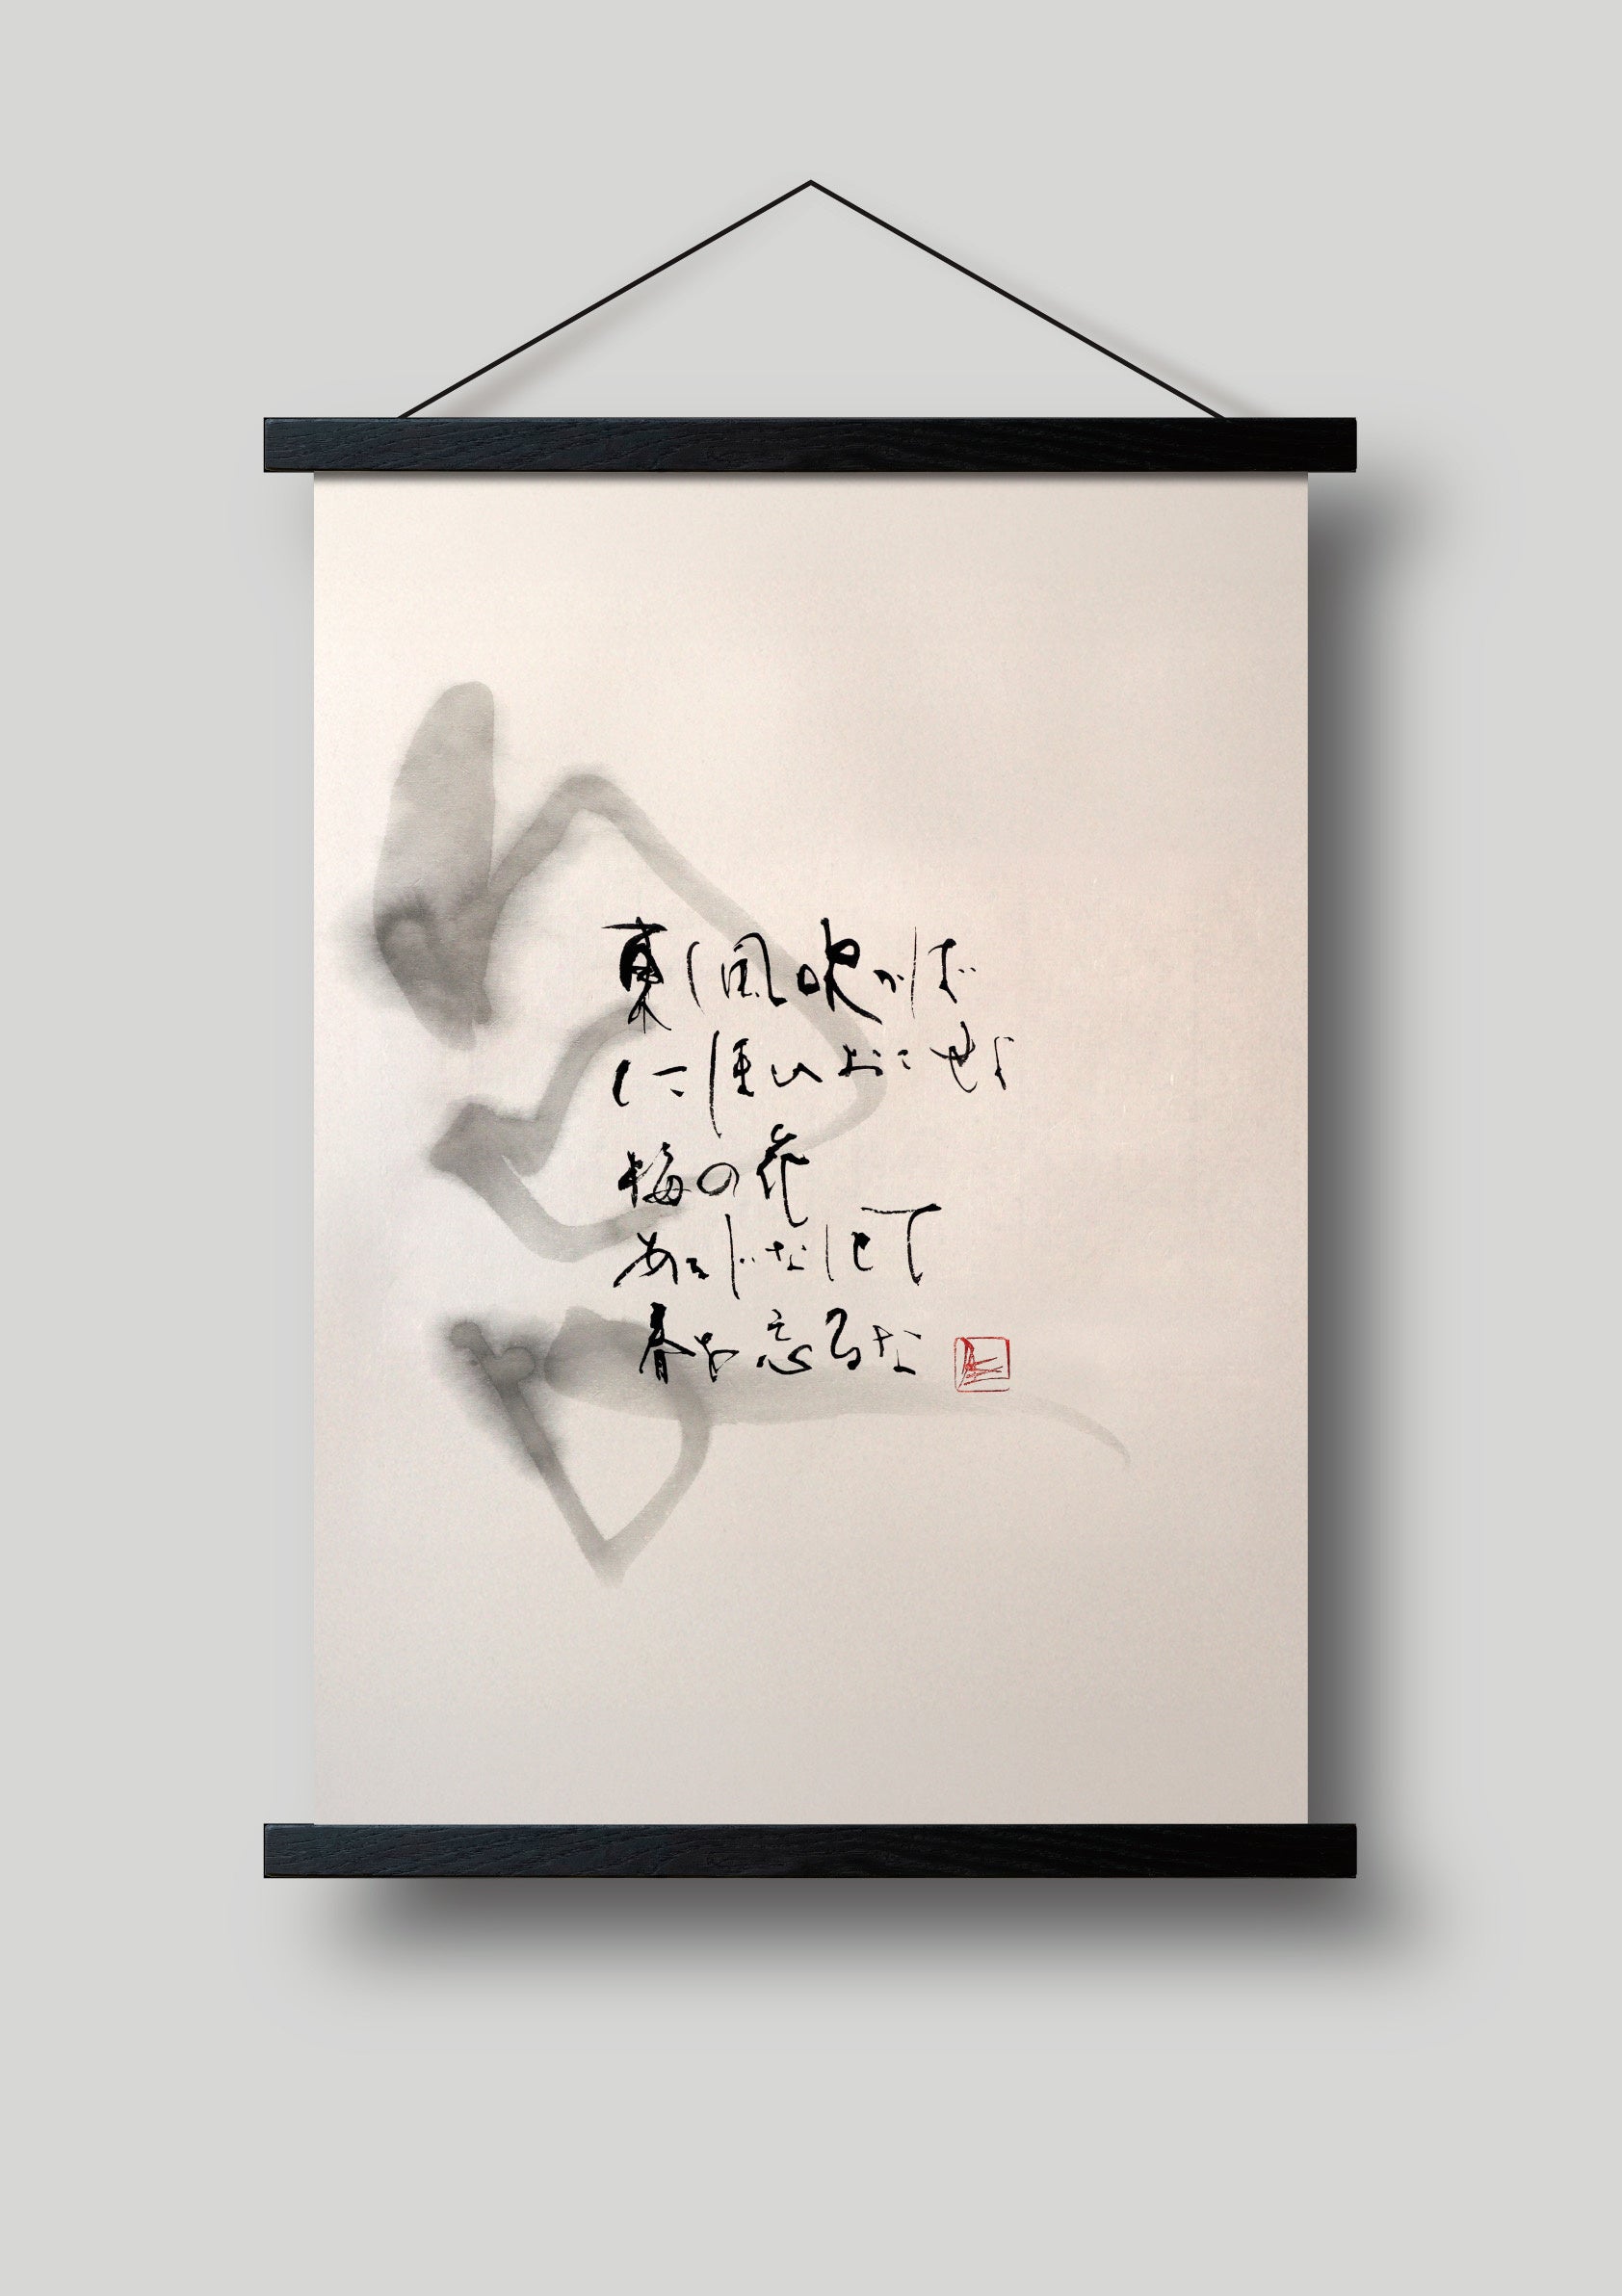 東し風吹かば
にほひおこせよ
梅の花
あるじなしとて
春を忘るな